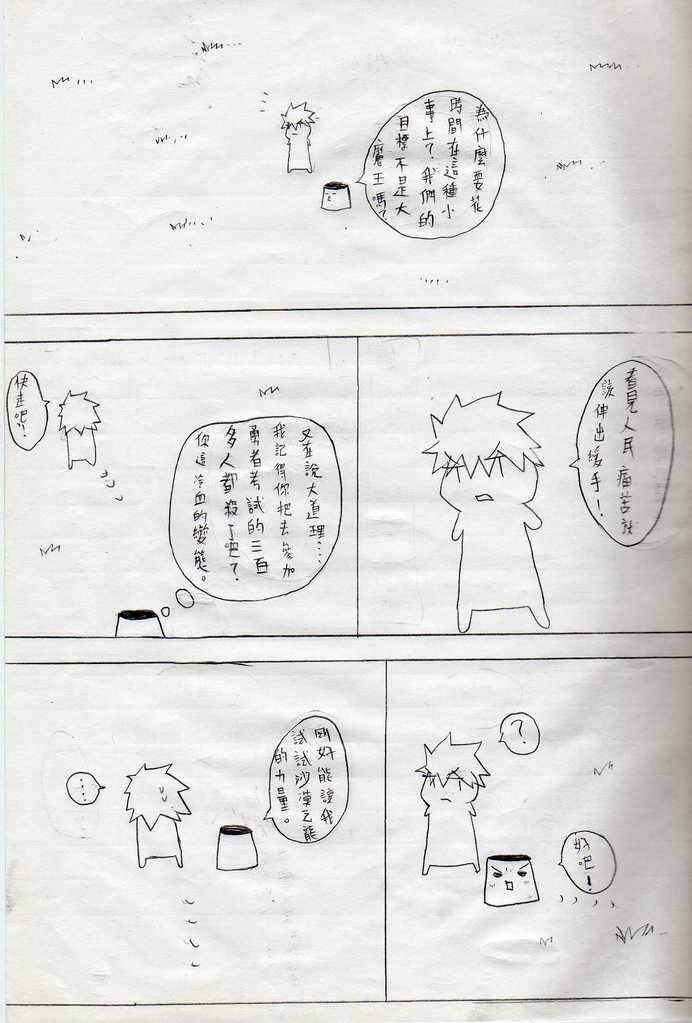 為什麼要花
時間在這種小
事上？我們的
目標不是大
魔王嗎？
看見人民痛苦就
該伸出緩手！
又在說大道理……
我記得你把去參加
勇者考試的三百
多人都殺了吧？
你這冷血的變態。
快走吧！
？
好吧！
剛好能讓我
試試沙漠之熊
的力量。
……